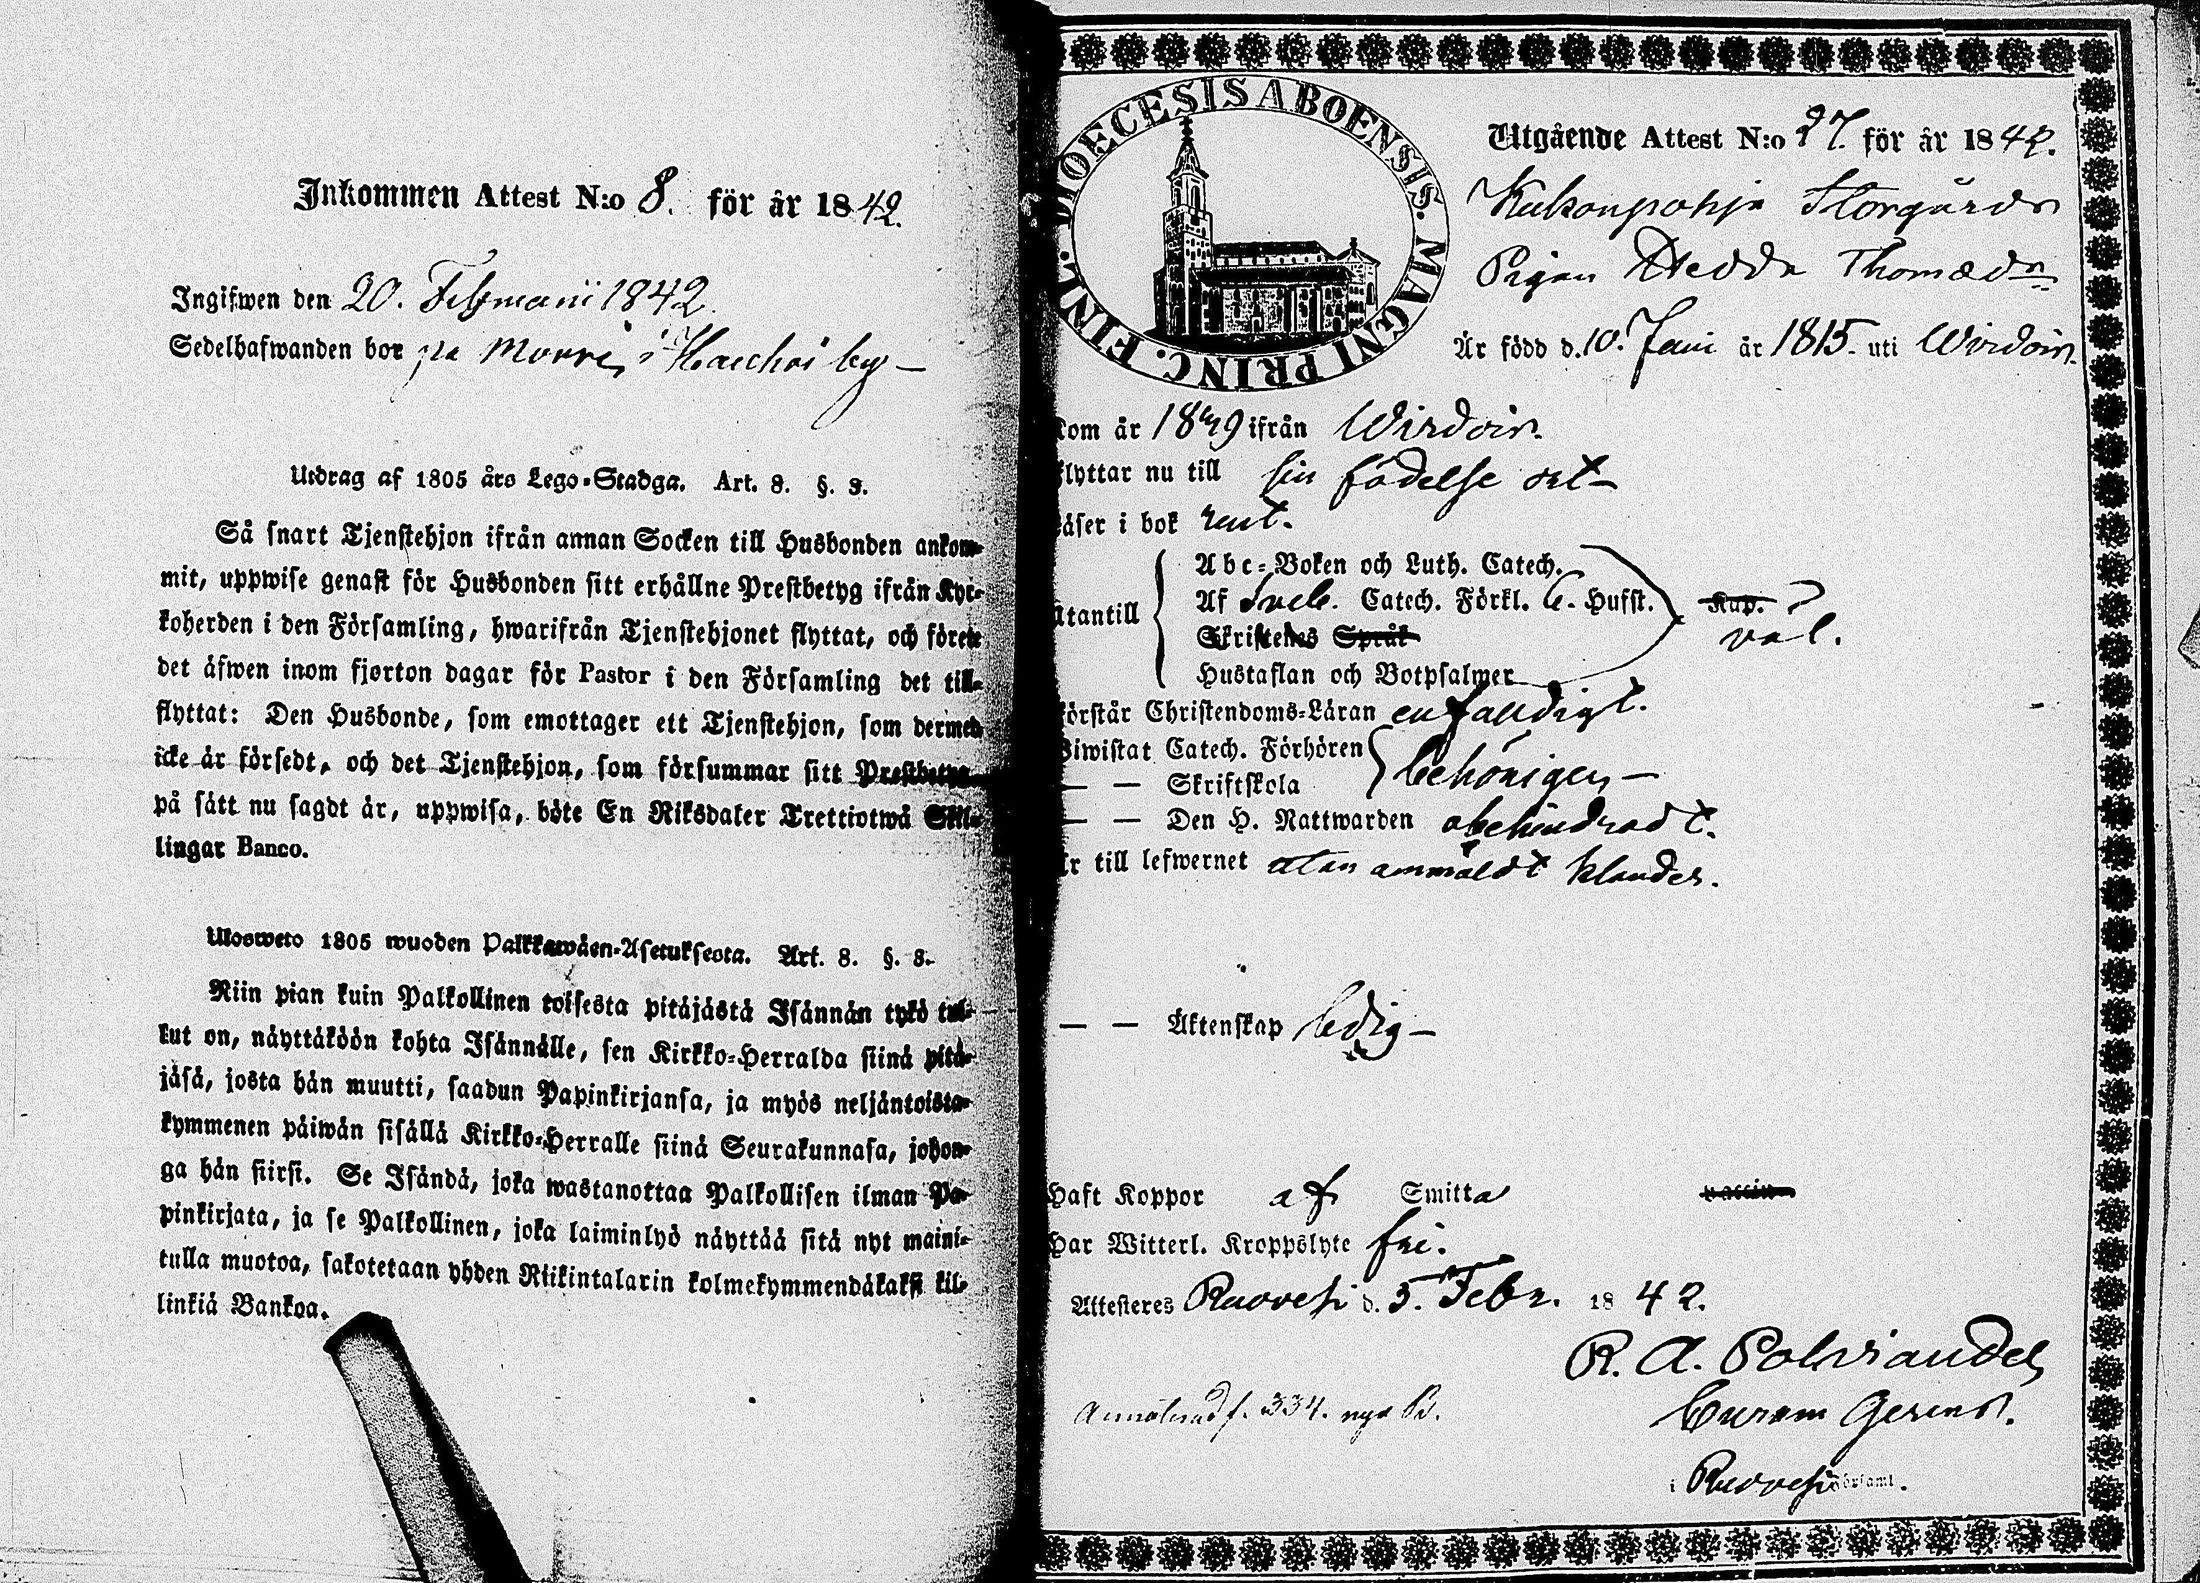 Inkommen Attest N:o 8. för år 1842.
Ingifwen den 20. Februarii 1842.
Sedelhafwanden bor på i by
Utdrag af 1805 års Lego-Stadga. Art. 8. §. 8.
Så snart Tjenstehjon ifrån annan Socken till Husbonden ankom-
mit, uppwise genast för Husbonden sitt erhållne Prestbetyg ifrån Kyr-
koherden i den Församling, hwarifrån Tjenstehjonet flyttat, och förete
det äfwen inom fjorton dagar för Pastor i den Församling det till-
flyttat: Den Husbonde, som emottager ett Tjenstehjon, som dermed
icke är försedt, och det Tjenstehjon, som försummar sitt Prestbetyg
på sätt nu sagdt är, uppwisa, böte En Riksdaler Trettiotwå Skil-
lingar Banco.
Ulosweto 1805 wuoden Palkkawäen-Asetuksesta. Art. 8. §. 8.
Niin pian kuin Palkollinen toisesta pitäjästä Isännän tykö tul-
kut on, näyttäköön kohta Isännälle, sen Kirkko-Herralda siinä pitä-
jäsä, josta hän muutti, saadun Papinkirjansa, ja myös neljäntoista-
kymmenen päiwän sisällä Kirkko-Herralle siinä Seurakunnasa, johon-
ga hän siirsi. Se Isändä, joka wastanottaa Palkollisen ilman Pa-
pinkirjata, ja se Palkollinen, joka laiminlyö näyttää sitä nyt maini-
tulla muotoa, sakotetaan yhden Riikintalarin kolmekymmendäkaksi kil-
linkiä Bankoa.
DIOECESIS ABOENSIS. MAGNI PRINC. FINL.
Utgående Attest N:o 27. för år 1842.
Storgårds
Pigan Hedda Thomædr
Är född d. 10. Juni år 1815. uti Wirdois.
Kom år 1839 ifrån Wirdois.
Flyttar nu till sin födelse ort
Läser i bok rent.
Utantill
Abc-Boken och Luth. Catech.
Af Sveb. Catech. Förkl. 6. Hufst. Kap.
Skriftenes Språk väl.
Hustaflan och Botpsalmer
Förstår Christendoms-Läran enfaldigt.
Biwistat Catech. Förhören
— — Skriftskola behörigen
— — Den H. Nattwarden obehindradt.
Är till lefwernet utan anmäldt klander.
— — Äktenskap ledig
Haft Koppor af Smitta vaccin
Har Witterl. Kroppslyte fri.
Attesteres Ruovesi d. 5. Febr. 1842.
R. A. Polviander
Curam Gerens.
Annoterad f. 334. nya B.
i Ruovesi Församl.